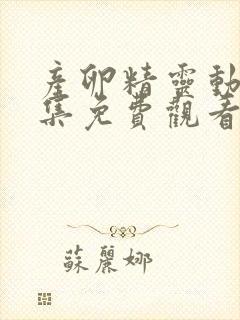 產卵精靈動
集免費觀看
蘇麗娜